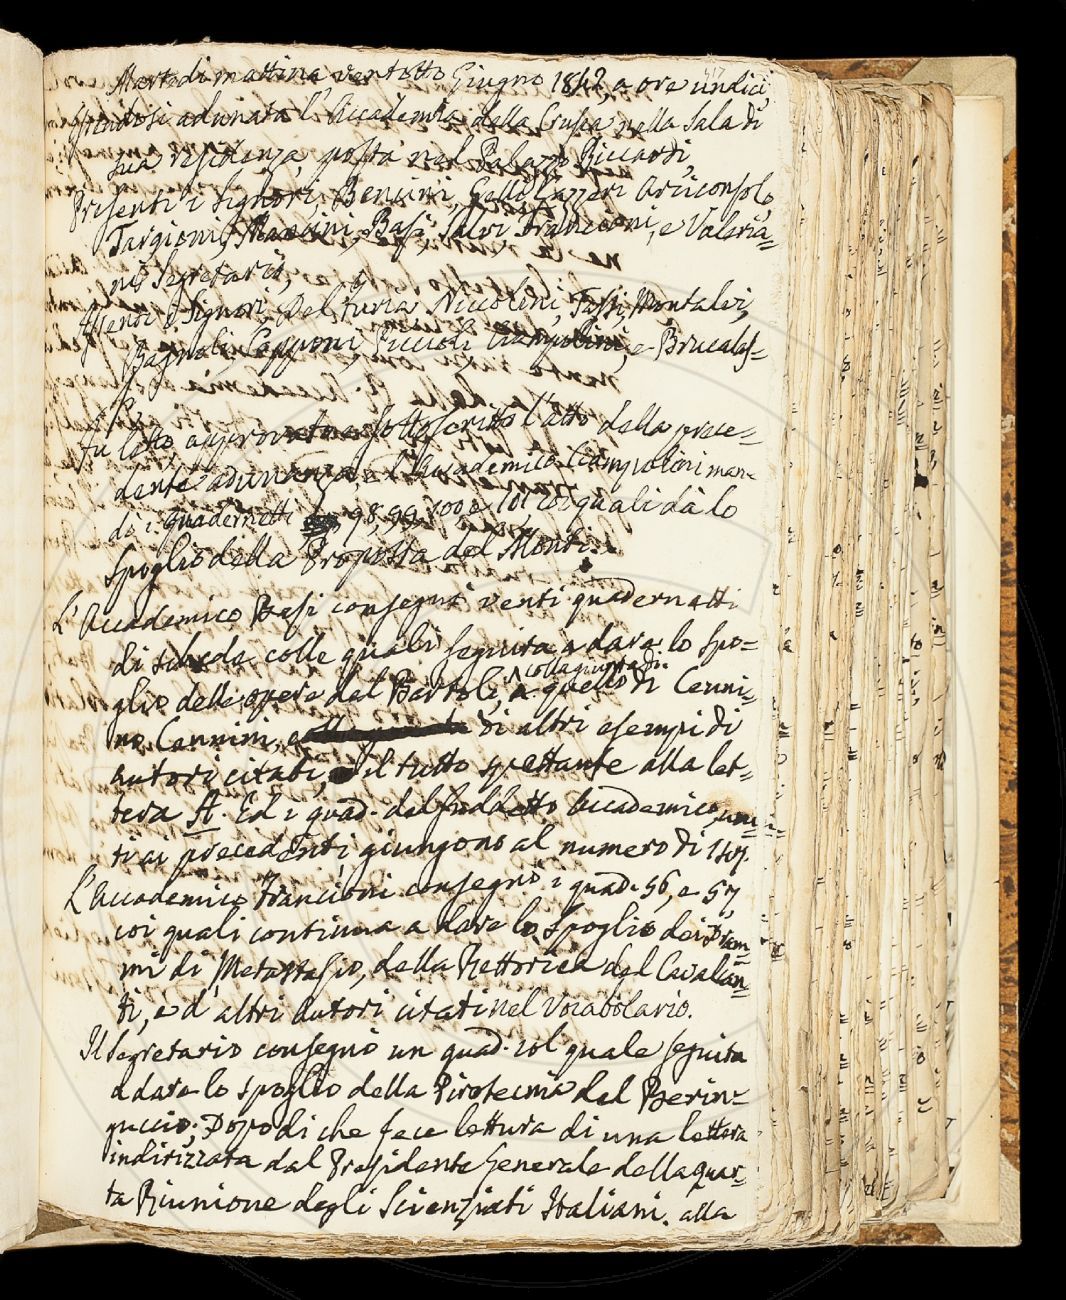 Martedì mattina ventotto Giugno 1842, a ore undici,
essendosi adunata l'Accademia della Crusca nella Sala di
sua residenza, posta nel Palazzo Riccardi,
Presenti i Signori, Bencini, Gello Gazzeri Arciconsolo,
Targioni, Mancini, Basi, Salvi Francioni, e Valeria=
ni Segretario,
Assenti i Signori, Del Furia Niccolini, Tassi, Montalvi,
Bagnoli Capponi, Puccioli Ciampolini, e Brucalas=
si
Fu letto, approvato, e sottoscritto l'atto della prece=
dente adunanza, e l'Accademico Ciampolini man=
dò i quadernetti 98, 99, 100, e 101 coi quali dà lo
spoglio della Proposta del Monti.
L'Accademico Basi consegnò venti quadernetti
di scheda colle quali seguita a dare lo spo=
glio delle opere del Bartoli, e colla giunta di quello di Cenni=
no Cennini, e di altri esempi di
autori citati, il tutto spettante alla let=
tera A. Ed i quad. del suddetto Accademico, uni=
ti ai precedenti giungono al numero di 147.
L'Accademico Francioni consegnò i quad. 56, e 57,
coi quali continua a dare lo spoglio dei Dram=
mi di Metastasio, della Rettorica del Cavalcan=
ti, e d'altri Autori citati nel Vocabolario.
Il Segretario consegnò un quad. col quale seguita
a dare lo spoglio della Pirotecnia del Berin=
guccio. Dopo di che fece lettura di una lettera
indirizzata dal Presidente Generale della quar=
ta Riunione degli Scienziati Italiani. alla